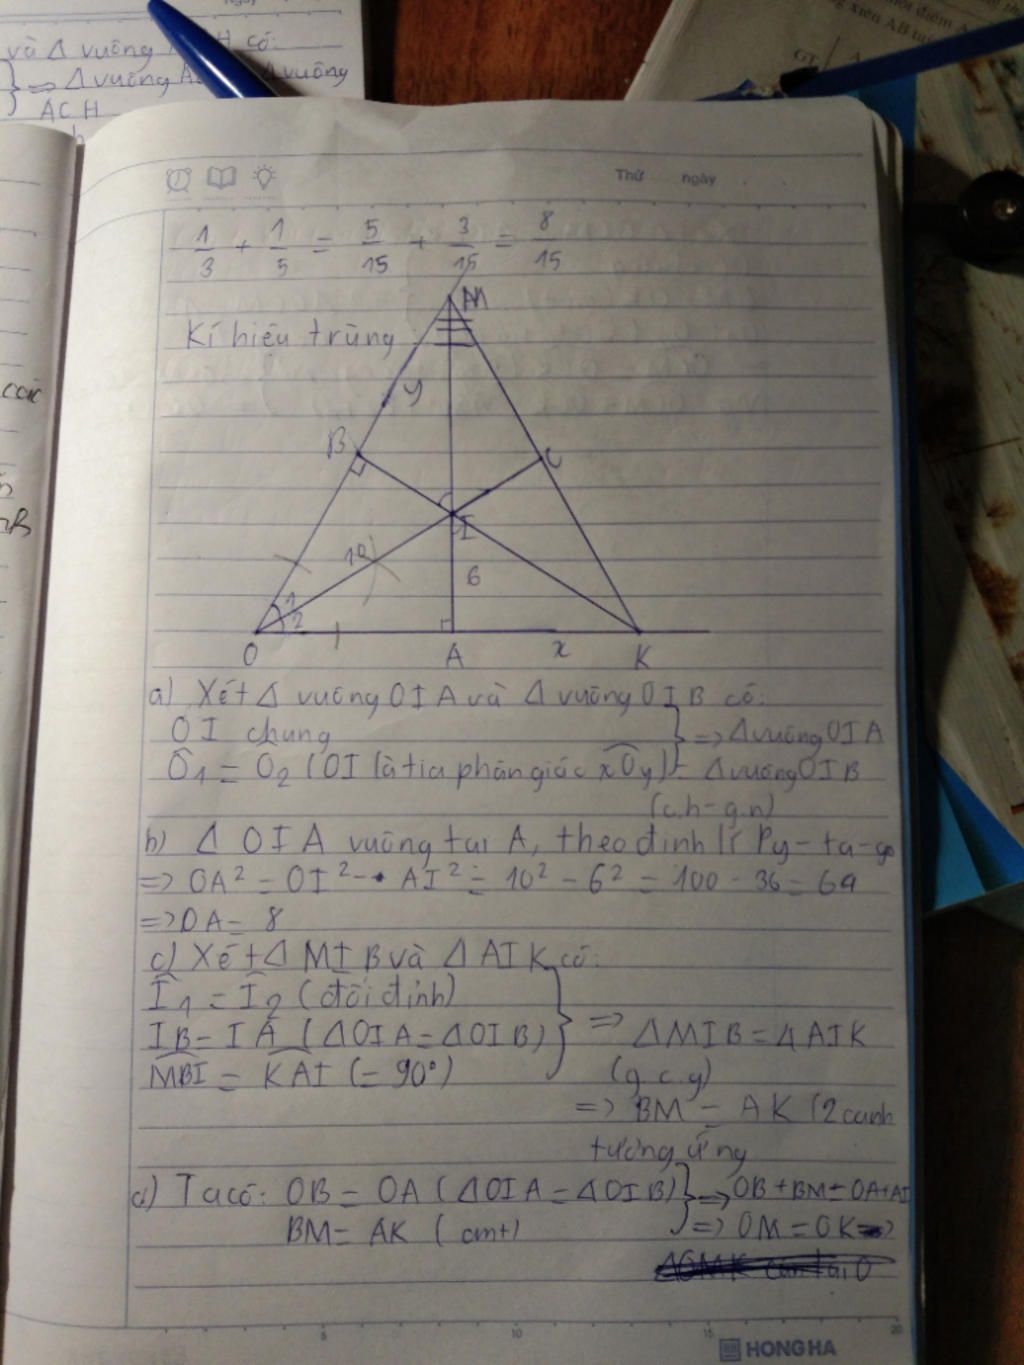 và Δ vuông H có:
⇒ Δ vuông Δ vuông
ACH
GT
xiên AB
Thứ ngày
1/3 + 1/5 = 5/15 + 3/15 = 8/15
M
Kí hiệu trùng
y
B
C
I
10
6
1
2
O A x K
a) Xét Δ vuông OIA và Δ vuông OIB có:
OI chung
⇒ Δ vuông OIA
Ô1 = Ô2 (OI là tia phân giác xOy) = Δ vuông OIB
(c.h-g.n)
b) Δ OIA vuông tại A, theo định lí Py-ta-go
=> OA² = OI² - AI² = 10² - 6² = 100 - 36 = 64
=> OA = 8
c) Xét Δ MIB và Δ AIK có:
Î1 = Î2 (đối đỉnh)
IB = IA (ΔOIA = ΔOIB) => ΔMIB = ΔAIK
MBI = KAI (= 90°) (g.c.g)
=> BM = AK (2 cạnh
tương ứng
d) Ta có: OB = OA (ΔOIA = ΔOIB) => OB + BM = OA + AI
BM = AK (cmt) => OM = OK =>
5 10 15 20
HONG HA